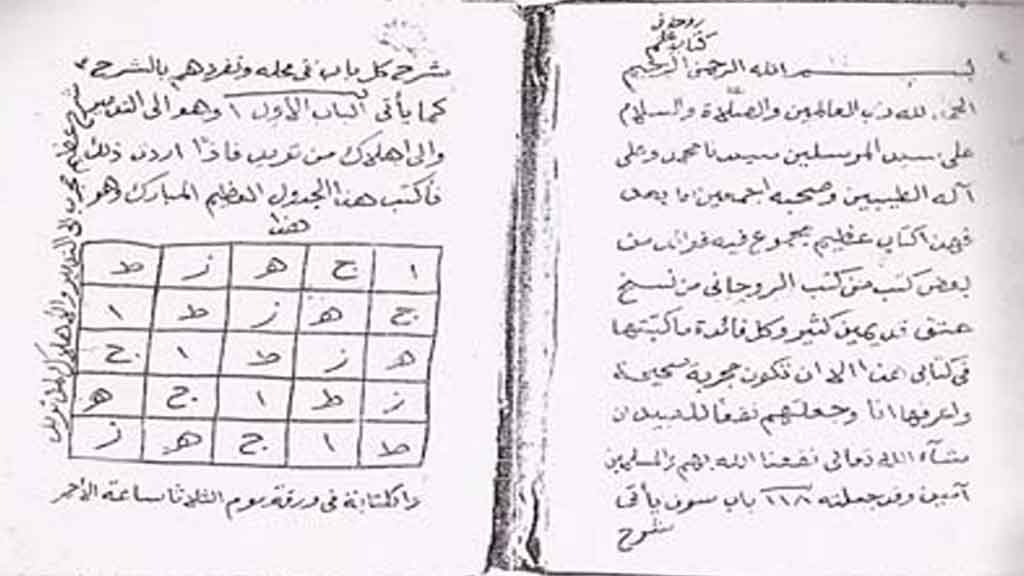 روحاني
كتاب علم
بسم الله الرحمن الرحيم
الحمد لله رب العالمين والصلاة والسلام
على سيد المرسلين سيدنا محمد وعلى
آله الطيبين وصحبه اجمعين اما بعد
فهذا كتاب عظيم مجموع فيه فوائد من
بعض كتب من كتب الروحاني من نسخ
عتق قديمين كثير وكل فائدة ما كتبتها
في كتابي هذا الا ان تكون مجربة صحيحة
واعرفها انا وجعلتهم نفعا للعبيد ان
شآء الله تعالى نفعنا الله بهم والمسلمين
آمين وقد جعلته ١١٨ باب سون يأتي
شرح
شرح كل باب في محله ونفردهم بالشرح
كما يأتي الباب الأول ١ وهو الى التدمير
والى اهلاك من تريد فاذا اردت ذلك
فاكتب هذا الجدول العظيم المبارك وهو
هذا
ا ج ه ز ط
ج ه ز ط ا
ه ز ط ا ج
ز ط ا ج ه
ط ا ج ه ز
والكتابة في ورقة يوم الثلاثا ساعة الأحمر
شرح عظيم مجرب الى التدمير والأهلاك لمن تريد